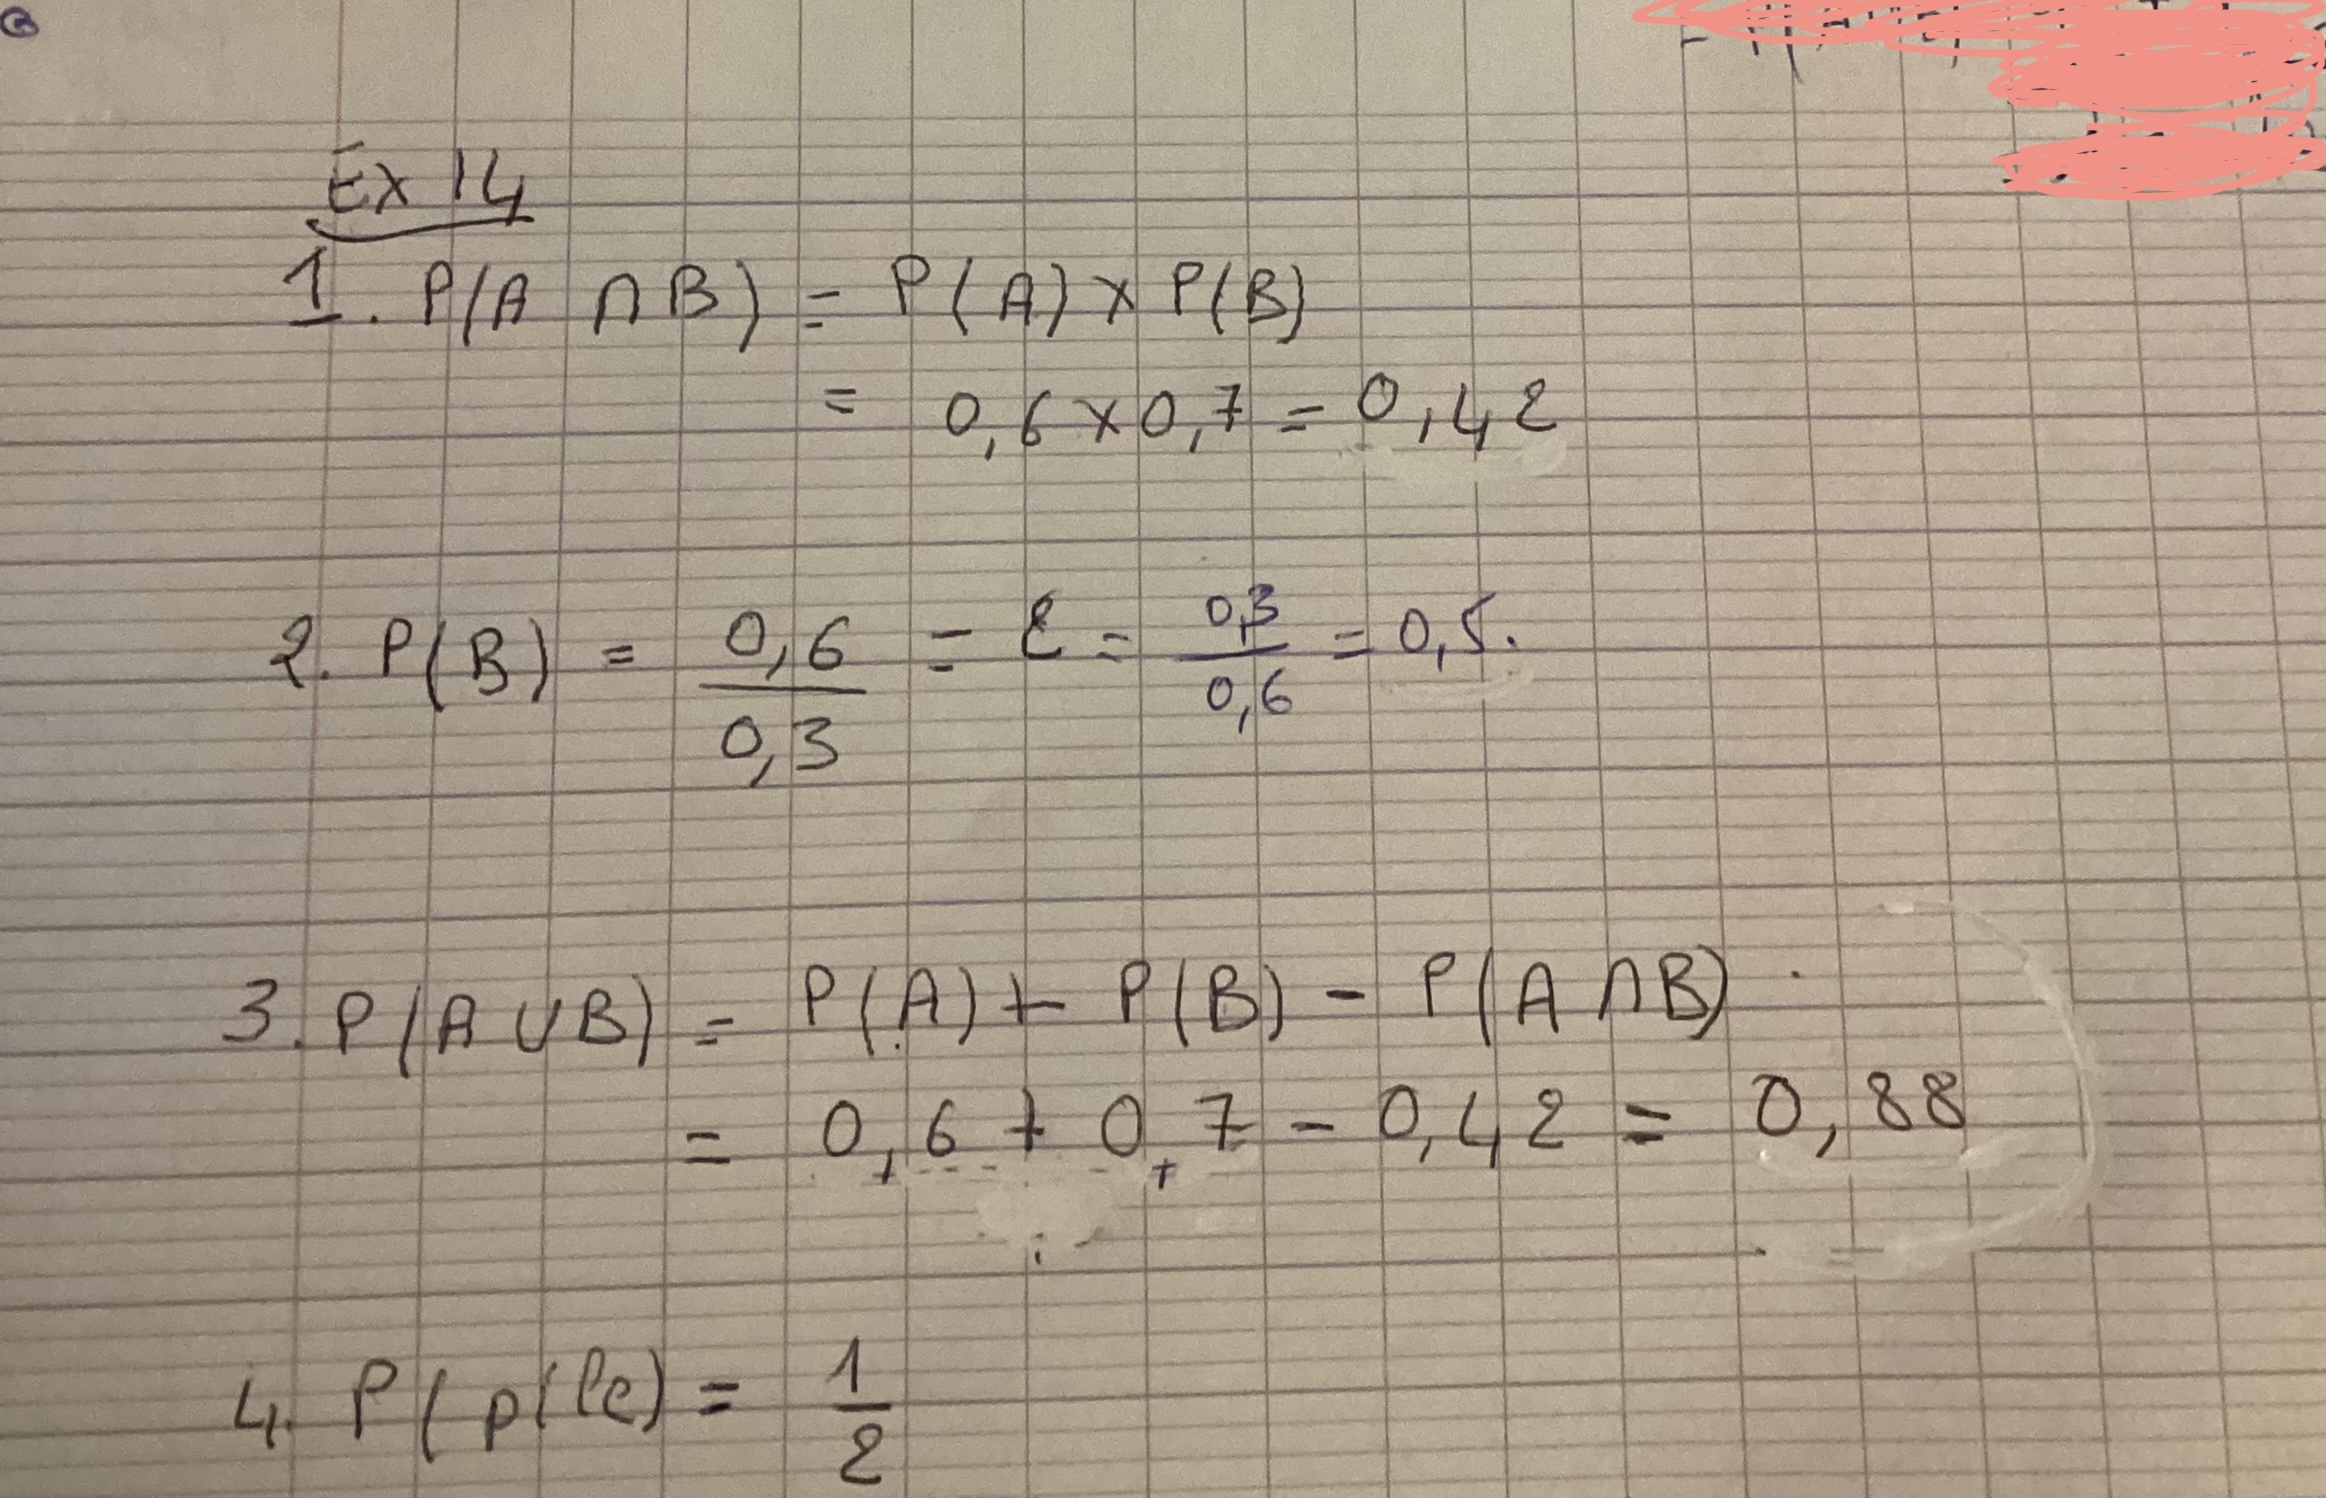 Ex 14
1. P(A ∩ B) = P(A) x P(B)
= 0,6 x 0,7 = 0,42
2. P(B) = 0,6/0,3 = 2 = 0,3/0,6 = 0,5.
3. P(A ∪ B) = P(A) + P(B) - P(A ∩ B)
= 0,6 + 0,7 - 0,42 = 0,88
4. P(pile) = 1/2